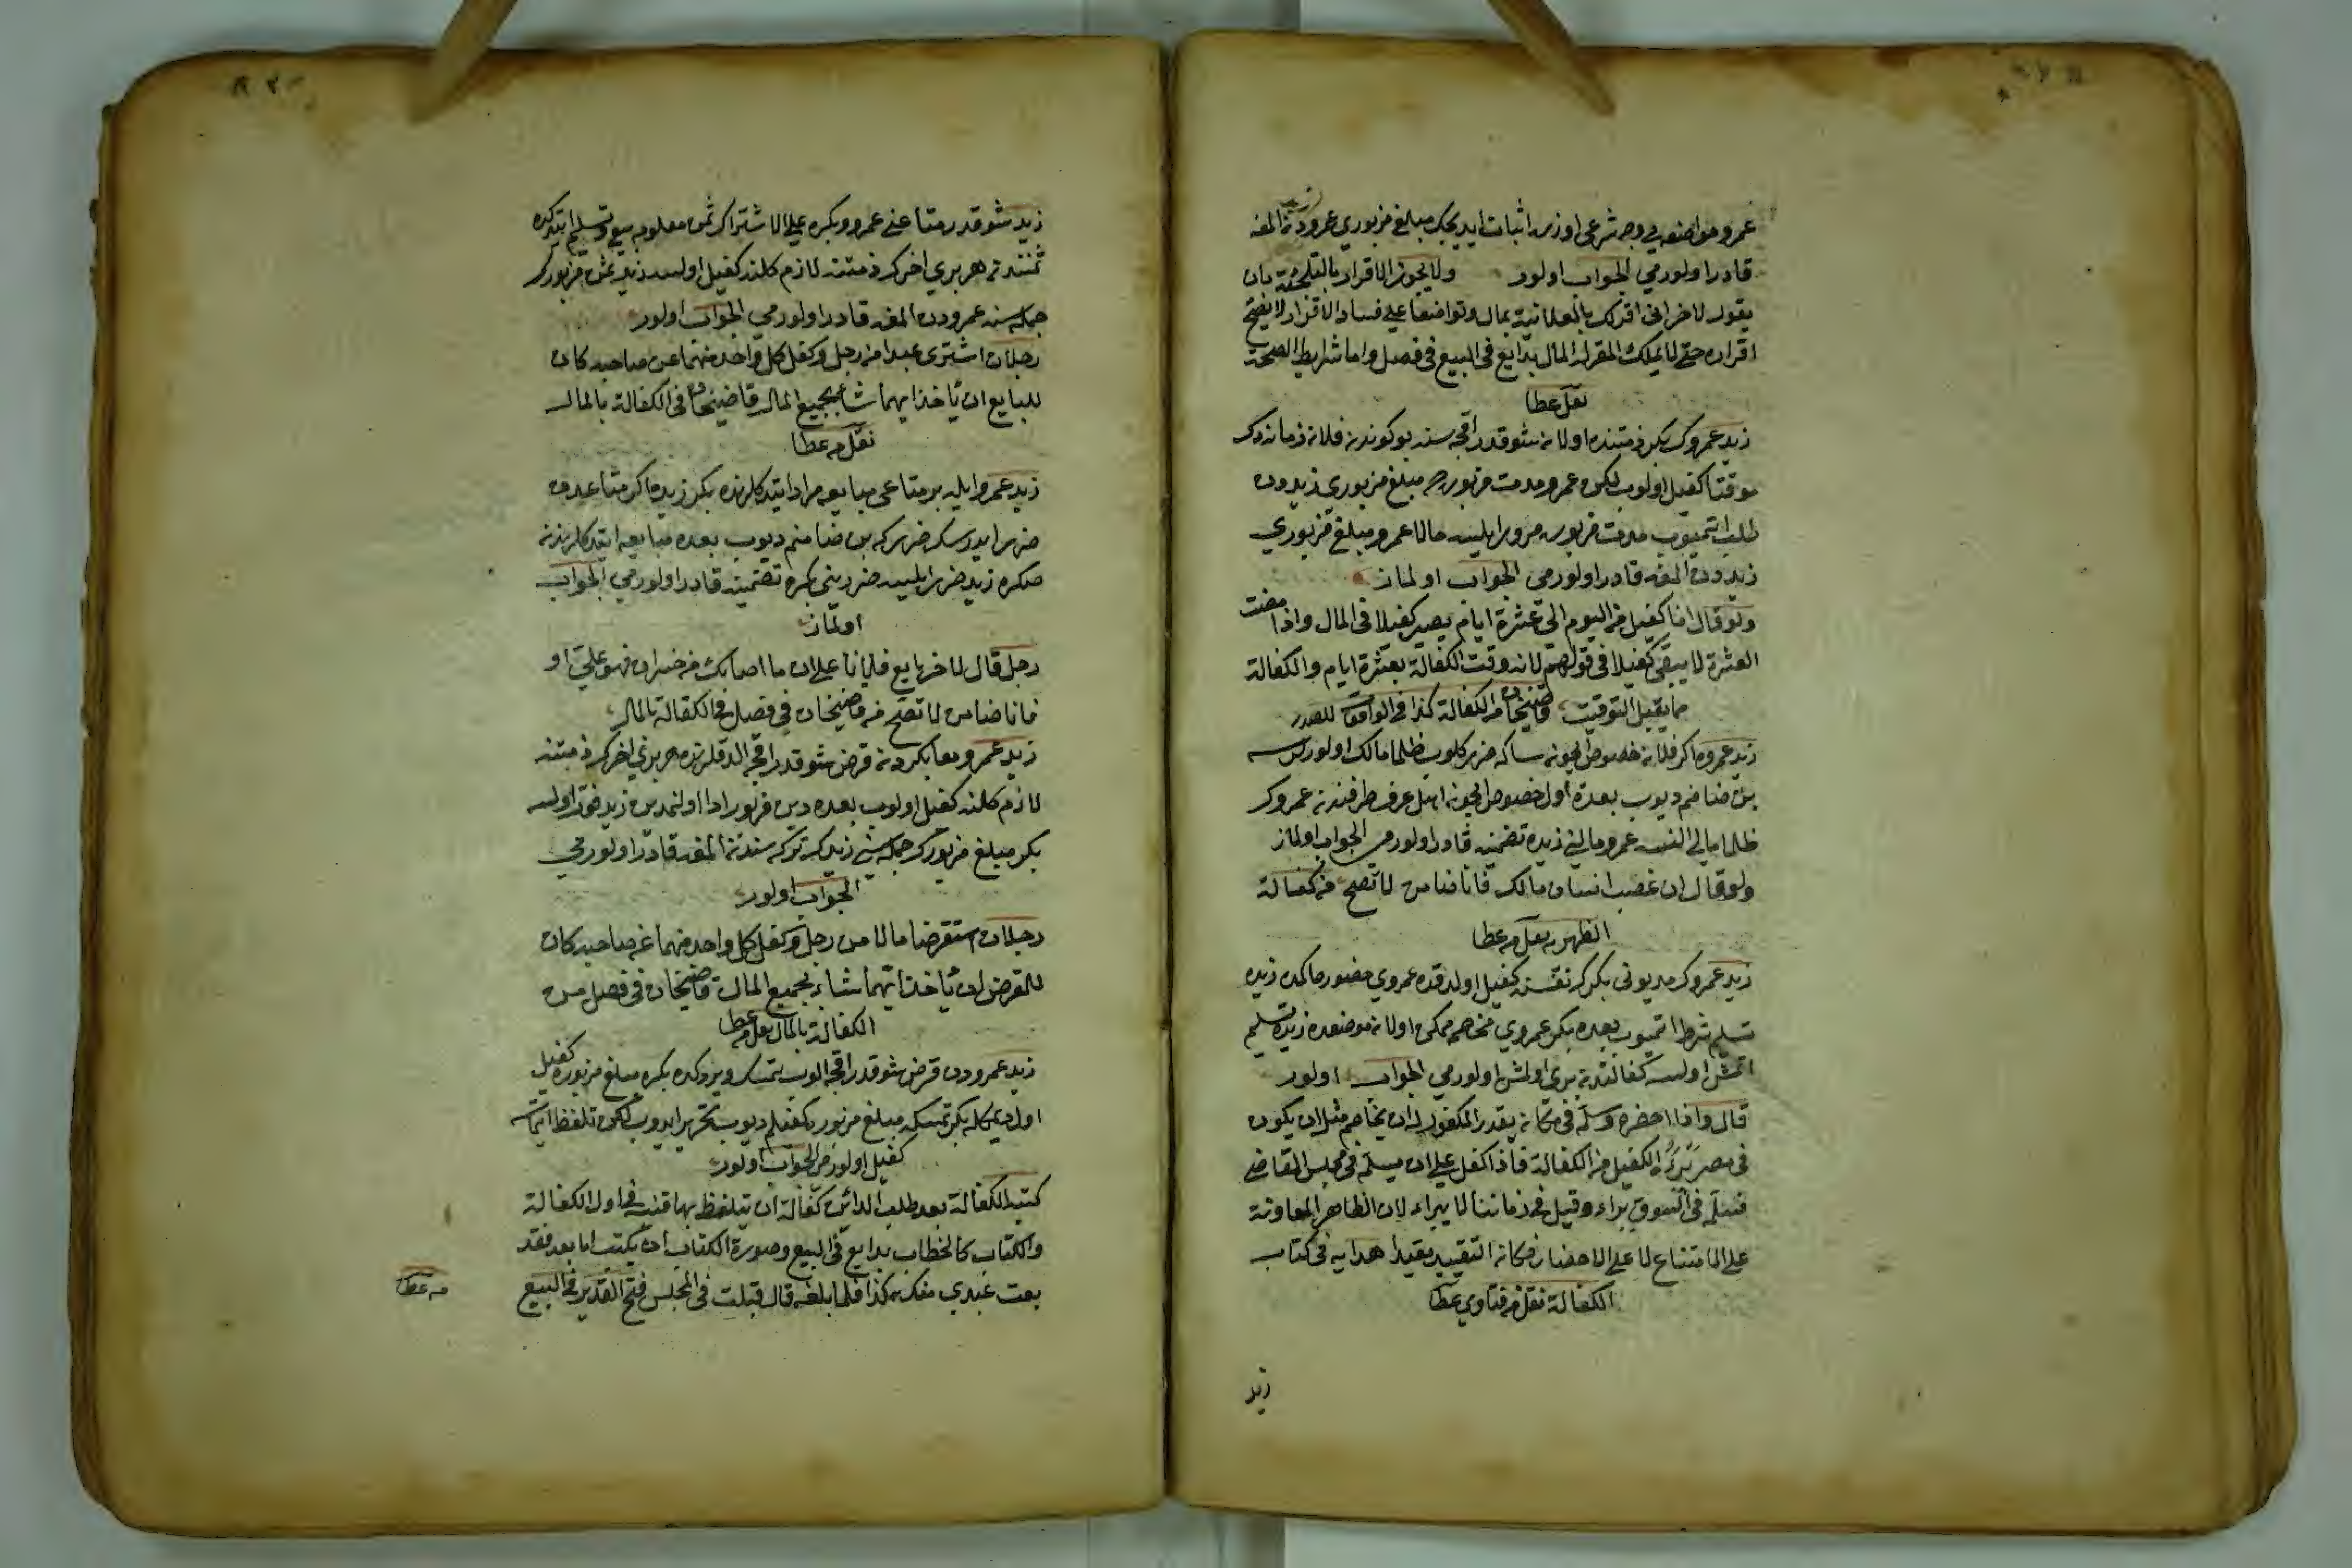 عمرو مواضعه يي وجه شرعي اوزره اثبات ايديجك مبلغ مزبوري عمرودن المغه
قادر اولورمي الجواب اولور ولا يجوز الاقرار بالتلجئة بان
يقول لاخر اني اقر لك بالعلانية بمال وتواضعا على فساد الاقرار لا يصح
اقراره حتى لا يملك المقر له المال بدايع في البيع في فصل واما شرايط الصحة
نقل عطا
زيد عمروك بكر ذمتنده اولان شو قدر اقچه سنه بو كوندن فلان زمانه دك
موقتا كفيل اولوب لكن عمرو مدت مزبوره ده مبلغ مزبوري زيددن
طلب ايتميوب مدت مزبوره مرور ايليسه حالا عمرو مبلغ مزبوري
زيددن المغه قادر اولورمي الجواب اولماز
ولو قال انا كفيل من اليوم الى عشرة ايام يصير كفيلا في المال واذا مضت
العشرة لا يبقى كفيلا في قولهم لانه وقت الكفالة بعشرة ايام والكفالة
مما يقبل التوقيت قاضيخان من الكفالة كذا في الواقعات للصدر
زيد عمروه اكر فلان خصوص ايچون ساكه ضرر كلوب ظلما مالك اولورسه
بن ضامنم ديوب بعده اول خصوص ايچون اهل عرف طرفندن عمروك
ظلما مالي النسه عمرو مالني زيده تضمينه قادر اولورمي الجواب اولماز
ولو قال ان غصب انسان مالك فانا ضامن لا تصح من كفالة
الظهيريه نقل من عطا
زيد عمروك مديوني بكرك نفسنه كفيل اولدقده عمروي حضور حاكمده زيده
تسليم شرط ايتميوب بعده بكر عمروي مخاصمه ممكن اولان موضعده زيده تسليم
ايتمش اولسه كفالتدن بري اولمش اولورمي الجواب اولور
قال واذا احضره وسلمه في مكان يقدر المكفول له ان يخاصم مثل ان يكون
في مصر برئ الكفيل من الكفالة فاذا كفل على ان يسلمه في مجلس القاضي
فسلمه في السوق براء وقيل في زماننا لا يبراء لان الظاهر المعاونة
على الامتناع لا على الاحضار فكان التقييد مقيدا هدايه في كتاب
الكفالة نقل من فتاوي عطا
زيد
زيد شو قدر متاعني عمرو وبكره على الاشتراك ثمن معلومه بيع وتسليم ايتدكده
ثمنندن هر بري اخرك ذمتنه لازم كلنه كفيل اولسه زيد ثمن مزبورك
جمله سنه عمرودن المغه قادر اولورمي الجواب اولور
رجلان اشترى عبدا من رجل وكفل كل واحد منهما عن صاحبه كان
للبايع ان يأخذ ايهما شاء بجميع المال قاضيخان في الكفالة بالمال
نقل من عطا
زيد عمرو ايله بر متاعي مبايعه مراد ايتدكلرنده بكر زيده اكر متاعدن
ضرر ايدرسك ضرركه بن ضامنم ديوب بعده مبايعه ايتدكلرندن
صكره زيد ضرر ايليسه ضرريني بكره تضمينه قادر اولورمي الجواب
اولماز
رجل قال لاخر بايع فلانا على ان ما اصابك من خسران فهو علي او
فانا ضامن لا تصح من قاضيخان في فصل في الكفالة بالمال
زيد عمرو معا بكردن قرض شو قدر اقچه الدقلرنده هر بري اخرك ذمتنه
لازم كلنه كفيل اولوب بعده دين مزبور ادا اولنمدين زيد فوت اولسه
بكر مبلغ مزبورك جمله سني زيدك تركه سندن المغه قادر اولورمي
الجواب اولور
رجلان استقرضا مالا من رجل وكفل كل واحد منهما عن صاحبه كان
للمقرض ان يأخذ ايهما شاء بجميع المال قاضيخان في فصل من
الكفالة بالمال نقل من عطا
زيد عمرودن قرض شو قدر اقچه الوب تمسك ويردكده بكره مبلغ مزبوره كفيل
اول ديمكله بكر تمسكه مبلغ مزبوره كفيلم ديوب تحرير ايدوب لكن تلفظ ايتمسه
كفيل اولورمي الجواب اولور
كتبه الكفالة بعد طلب الدائن كفالة ان تيلفظ بها قنيه في اول الكفالة
والكتاب كالخطاب بدايع في البيع وصورة الكتاب ان يكتب اما بعد فقد
بعت عبدي منك بكذا فلما بلغه قال قبلت في المجلس فتح القدير في البيع
من عطا